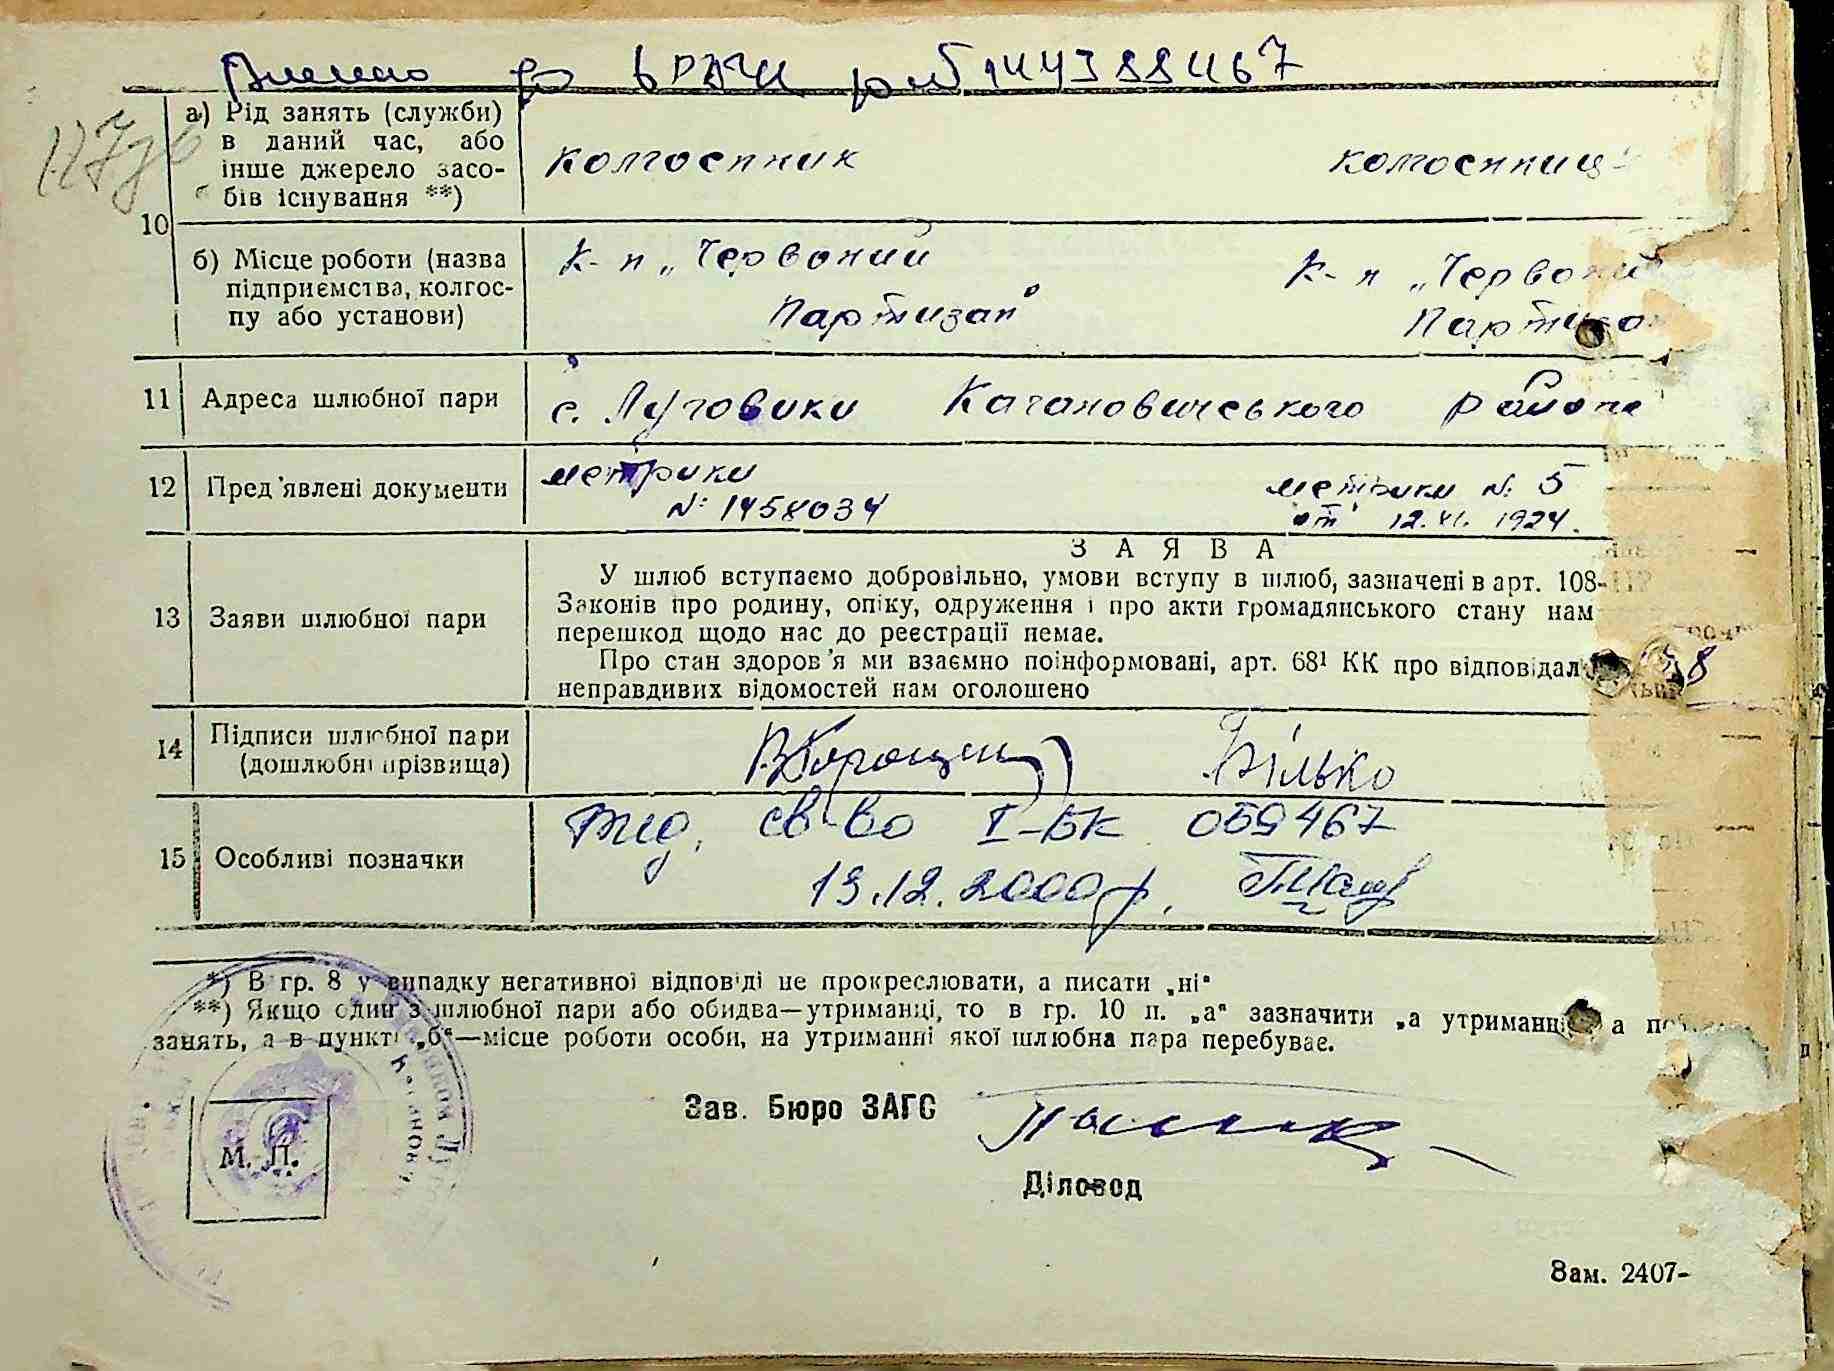 Внесено до ВРАЦН
а) Рід занять (служби) в даний час, або інше джерело засобів існування **)
колгоспник
колгоспниц
10
б) Місце роботи (назва підприємства, колгоспу або установи)
к-п „Червоний
Партизан"
к-п „Червоний
Партизан
11 Адреса шлюбної пари
с. Луговики Кагановичського району
12 Пред'явлені документи
метрики
№ 1458034
метрики № 5
от 12.XI. 1924.
13 Заяви шлюбної пари
ЗАЯВА
У шлюб вступаємо добровільно, умови вступу в шлюб, зазначені в арт. 108-
Законів про родину, опіку, одруження і про акти громадянського стану нам
перешкод щодо нас до реєстрації немає.
Про стан здоров'я ми взаємно поінформовані, арт. 68¹ КК про відповідал
неправдивих відомостей нам оголошено
14 Підписи шлюбної пари
(дошлюбні прізвища)
Білько
15 Особливі позначки
вид. св-во I-БК 059467
13.12.2000р.
*) В гр. 8 у випадку негативної відповіді не прокреслювати, а писати „ні"
**) Якщо один з шлюбної пари або обидва—утриманці, то в гр. 10 п. „а" зазначити „а утриманц а по
занять, а в пункті „б"—місце роботи особи, на утриманні якої шлюбна пара перебуває.
Зав. Бюро ЗАГС
М. П.
Діловод
Зам. 2407-